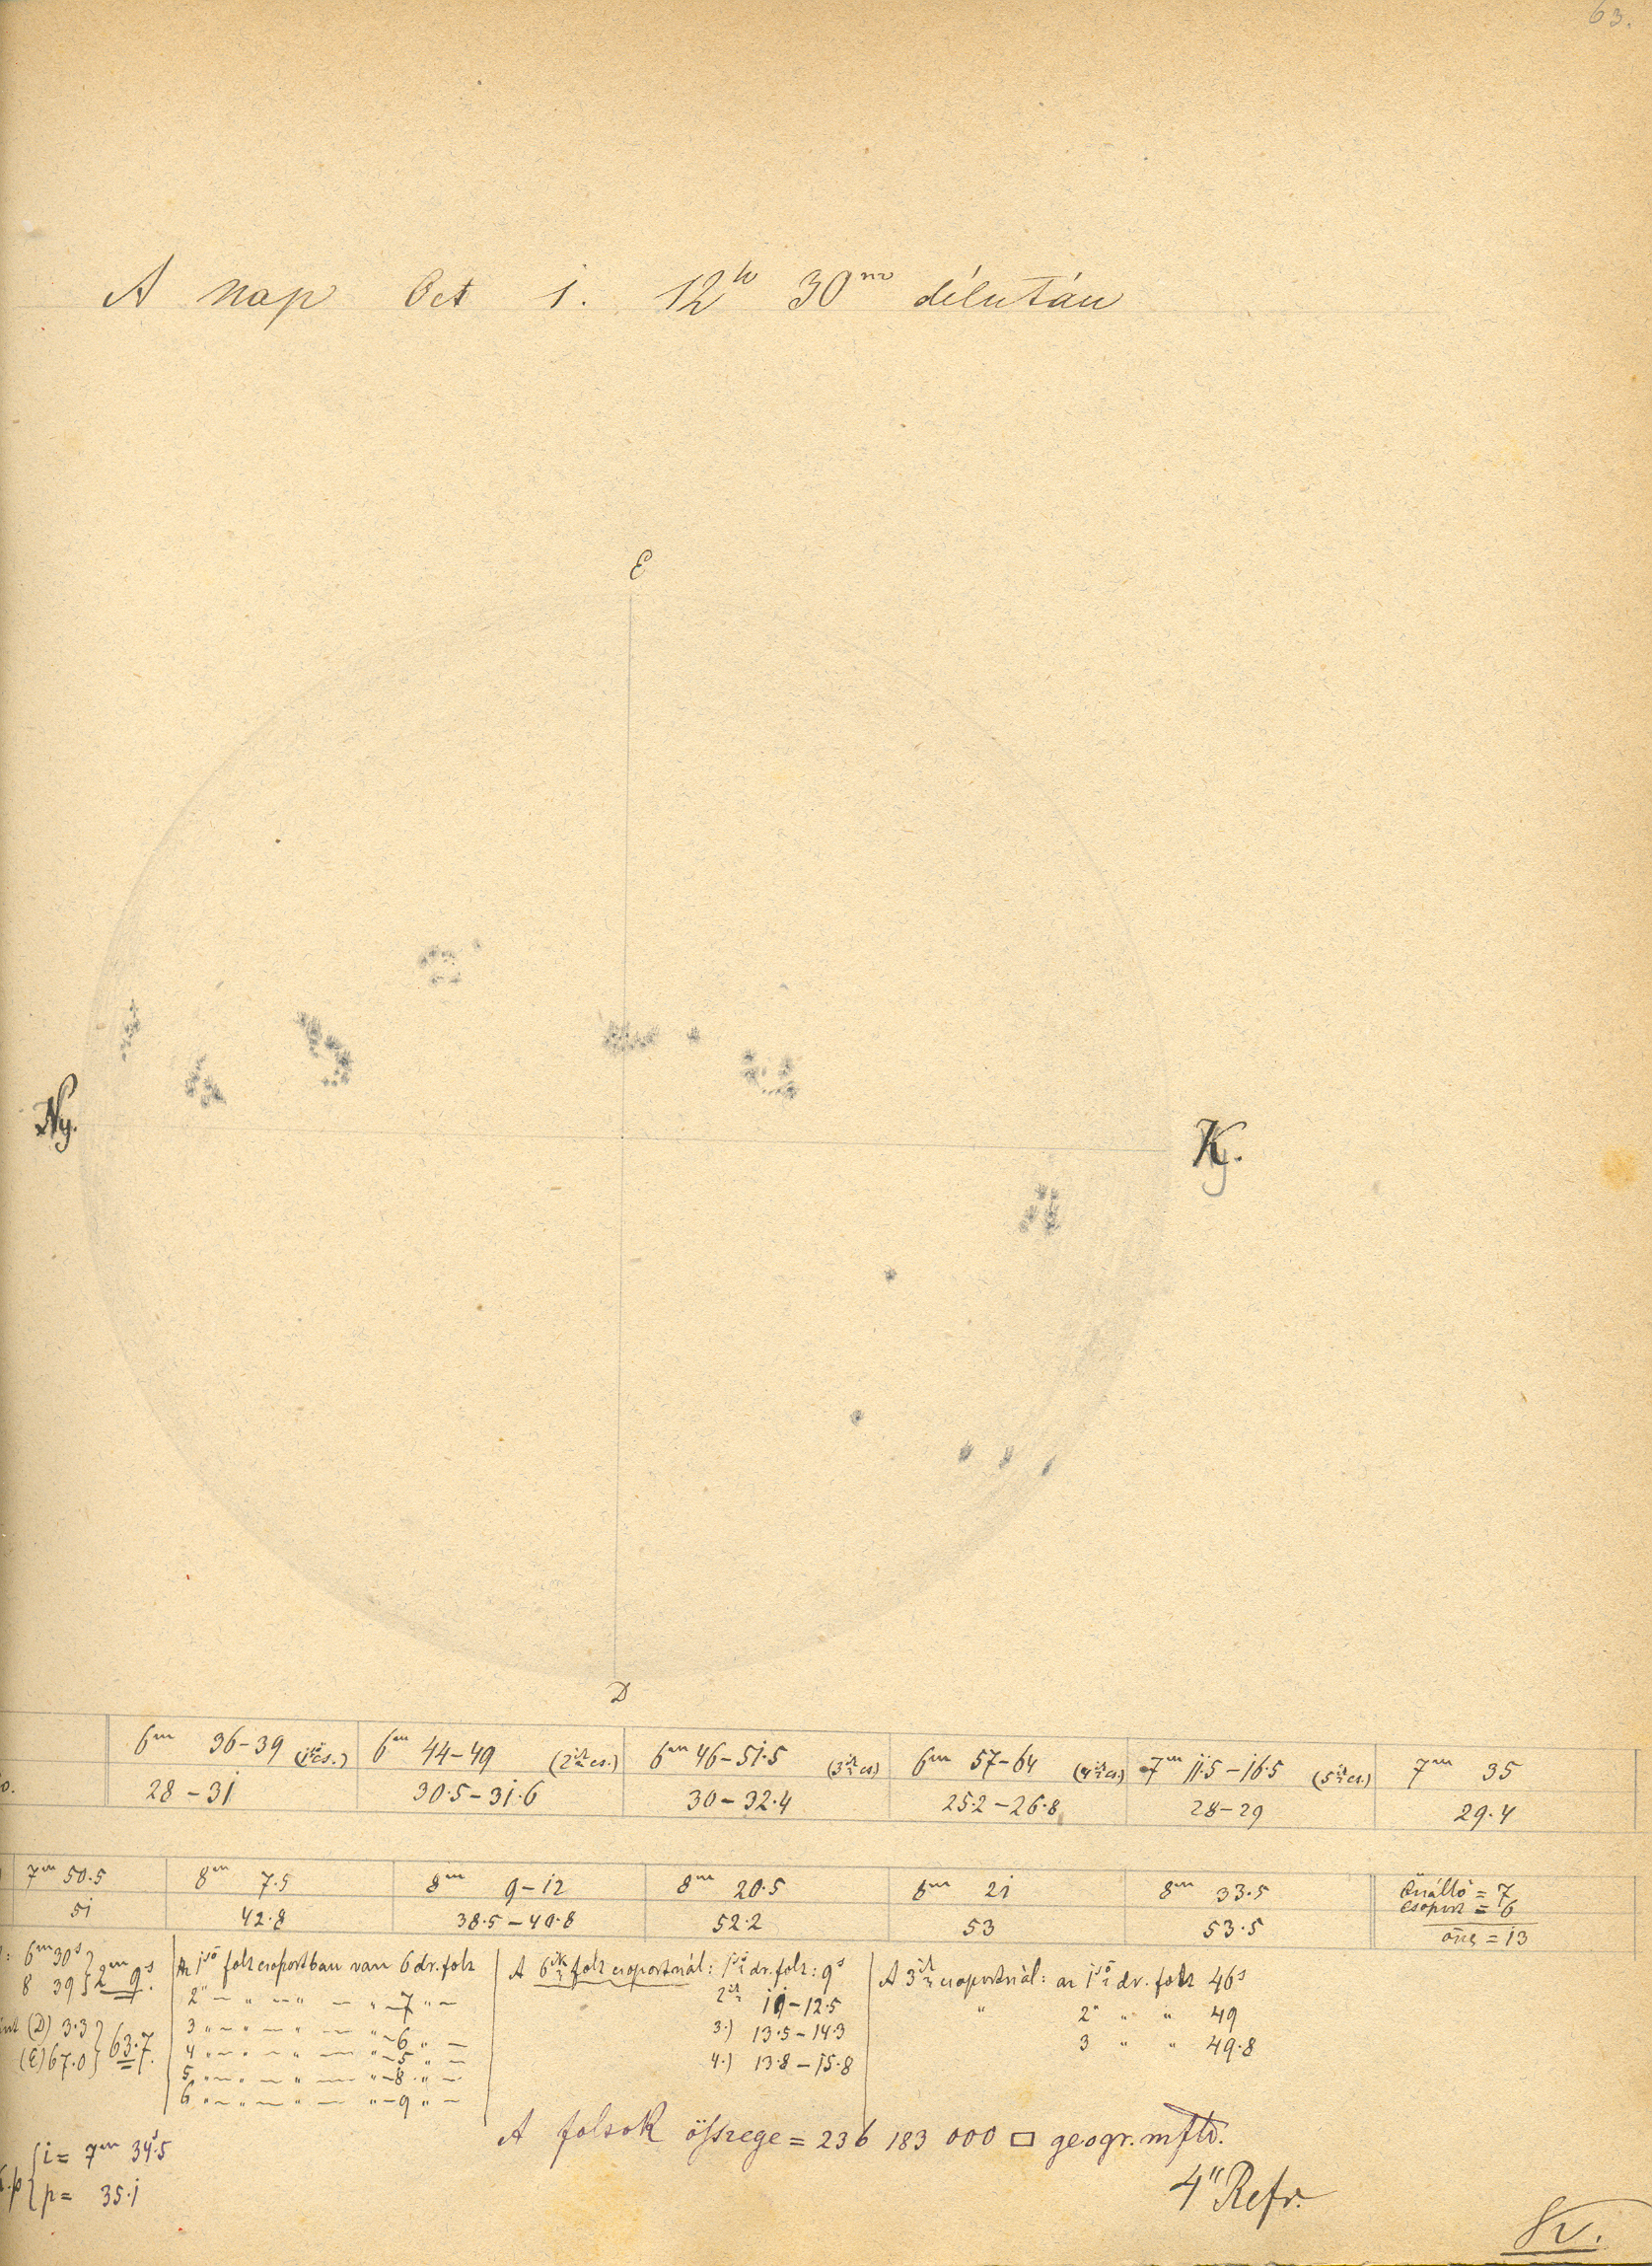 63.
A nap Oct 1. 12h 30m délután
É
Ny.
K.
D
6m 36-39 (1ső cs.) 6m 44-49 (2ik cs.) 6m 46-51.5 (3ik cs) 6m 57-64 (4ik cs.) 7m 11.5-16.5 (5ik cs.) 7m 35
28-31 30.5-31.6 30-32.4 25.2-26.8 28-29 29.4
7m 50.5 8m 7.5 8m 9-12 8m 20.5 8m 21 8m 33.5 Önálló = 7
51 42.8 38.5-40.8 52.2 53 53.5 Csoport = 6
össz = 13
: 6m 30s
8 39 } 2m 9s.
(D) 3.3
(É) 67.0 } 63.7.
Az 1ső folt csoportban van 6 dr. folt
2 " — " " — " — " — 7 " —
3 " — " — " — " — 6 " —
4 " — " — " — " — 5 " —
5 " — " — " — " — 8 " —
6 " — " — " — " — 9 " —
A 6ik folt csoportnál: 1ső dr. folt: 9s
2ik 11-12.5
3.) 13.5-14.3
4.) 13.8-15.8
A 3ik csoportnál: az 1ső dr. folt 46s
" 2" " " 49
3 " " 49.8
A foltok összege = 236 183 000 □ geogr. mfld.
i = 7m 34.5
p = 35.1
4" Refr.